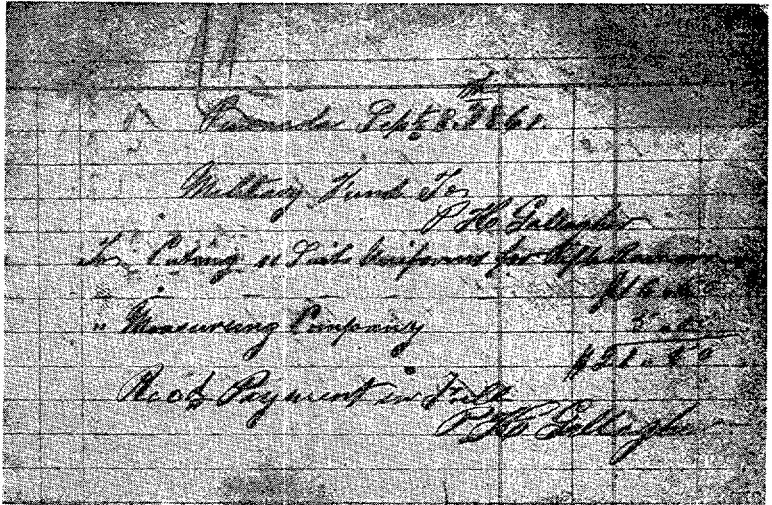 Sept 8th 1861
Military Fund To
P H Gallagher
To Cuting Suits Uniforms for
$16.00
" Measuring Company 5.00
$21.00
Recd Payment in Full
P H Gallagher